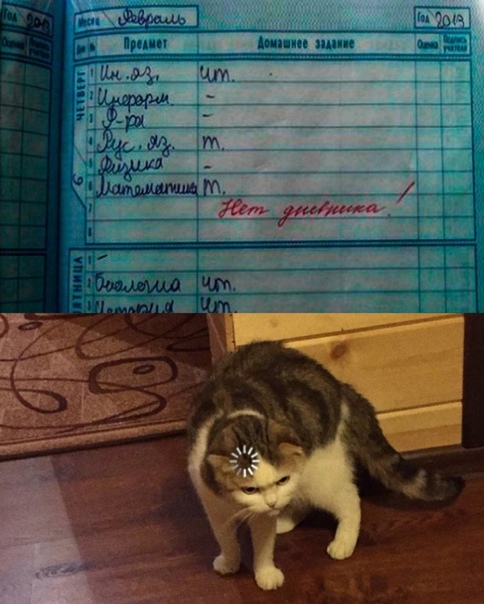 Год 2019
Месяц Февраль
Год 2019
Оценка Подпись учителя
Дни № Предмет Домашнее задание Оценка Подпись учителя
ЧЕТВЕРГ
6
1 Ин. яз. чт.
2 Информ -
3 Ф-ра -
4 Рус. яз. т.
5 Физика -
6 Математика т.
7 Нет дневника!
8
ПЯТНИЦА
1 -
2 Биология чт.
3 История чт.